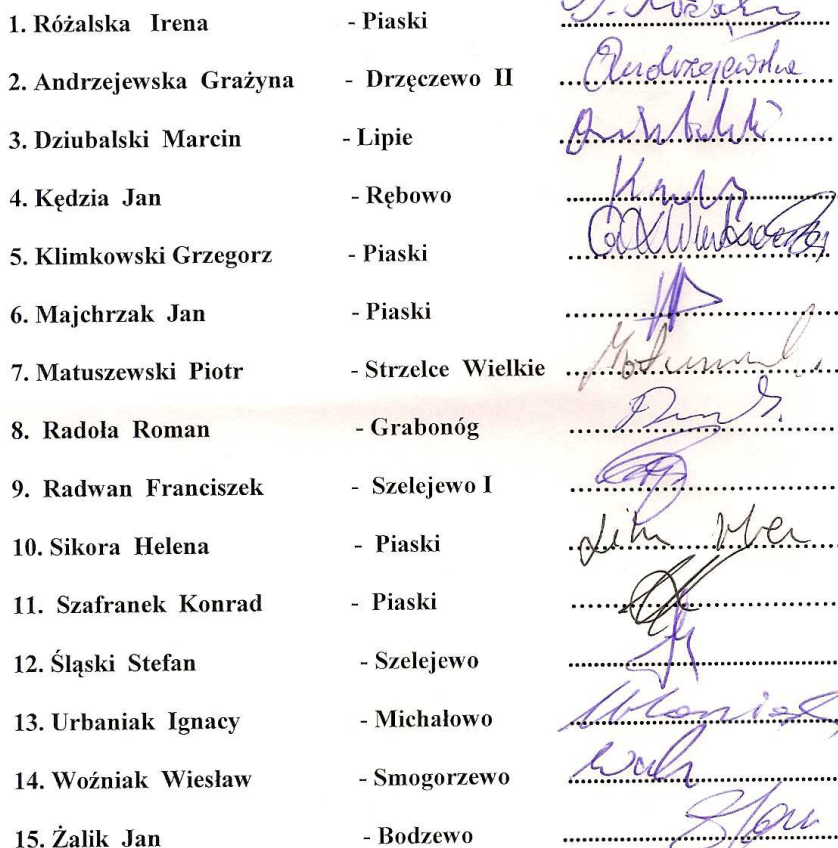 1. Różalska Irena - Piaski ..............................
2. Andrzejewska Grażyna - Drzęczewo II .............................. Andrzejewska
3. Dziubalski Marcin - Lipie ..............................
4. Kędzia Jan - Rębowo ..............................
5. Klimkowski Grzegorz - Piaski ..............................
6. Majchrzak Jan - Piaski ..............................
7. Matuszewski Piotr - Strzelce Wielkie ..............................
8. Radoła Roman - Grabonóg ..............................
9. Radwan Franciszek - Szelejewo I ..............................
10. Sikora Helena - Piaski ..............................
11. Szafranek Konrad - Piaski ..............................
12. Śląski Stefan - Szelejewo ..............................
13. Urbaniak Ignacy - Michałowo ..............................
14. Woźniak Wiesław - Smogorzewo ..............................
15. Żalik Jan - Bodzewo ..............................